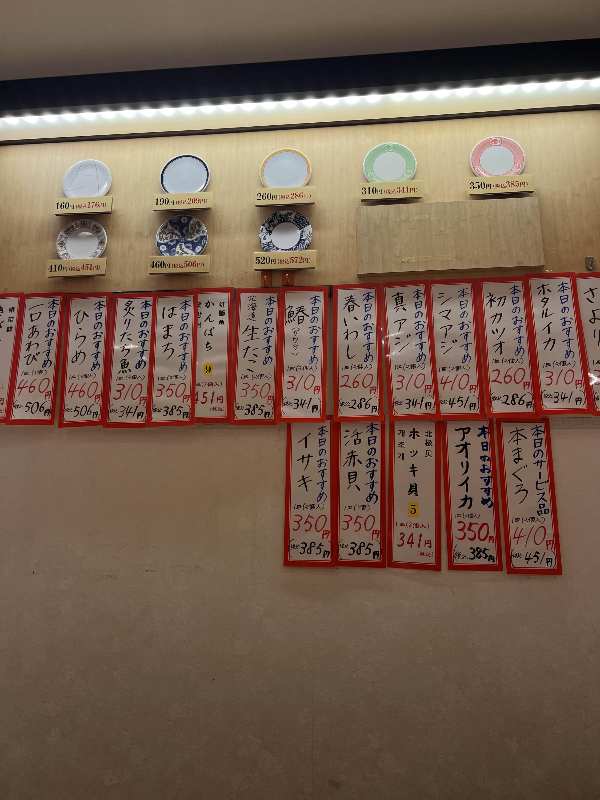 160円(税込176円)
190円(税込209円)
260円(税込286円)
310円(税込341円)
350円(税込385円)
410円(税込451円)
460円(税込506円)
520円(税込572円)
さより
本日のおすすめ
ホタルイカ
310円
税込341円
本日のおすすめ
初カツオ
1皿(2個入)
260円
税込286円
本日のおすすめ
シマアジ
1皿(2個入)
410円
税込451円
本日のおすすめ
真アジ
1皿(2個入)
310円
税込341円
本日のおすすめ
春いわし
1皿(2個入)
260円
税込286円
本日のおすすめ
鰆(サワラ)
1皿(2個入)
310円
税込341円
本日のおすすめ
北海道
生だこ
350円
税込385円
かんぱち
451円
(税込)
本日のおすすめ
はまち
350円
税込385円
本日のおすすめ
炙りたち魚
310円
税込341円
本日のおすすめ
ひらめ
460円
税込506円
本日のおすすめ
一口あわび
460円
税込506円
本日のサービス品
本まぐろ
1皿(2個入)
410円
税込451円
本日のおすすめ
アオリイカ
350円
税込385円
北極貝
ホッキ貝
5
1皿(2個入)
341円
(税込)
本日のおすすめ
活赤貝
1皿(2個入)
350円
税込385円
本日のおすすめ
イサキ
1皿(2個入)
350円
税込385円